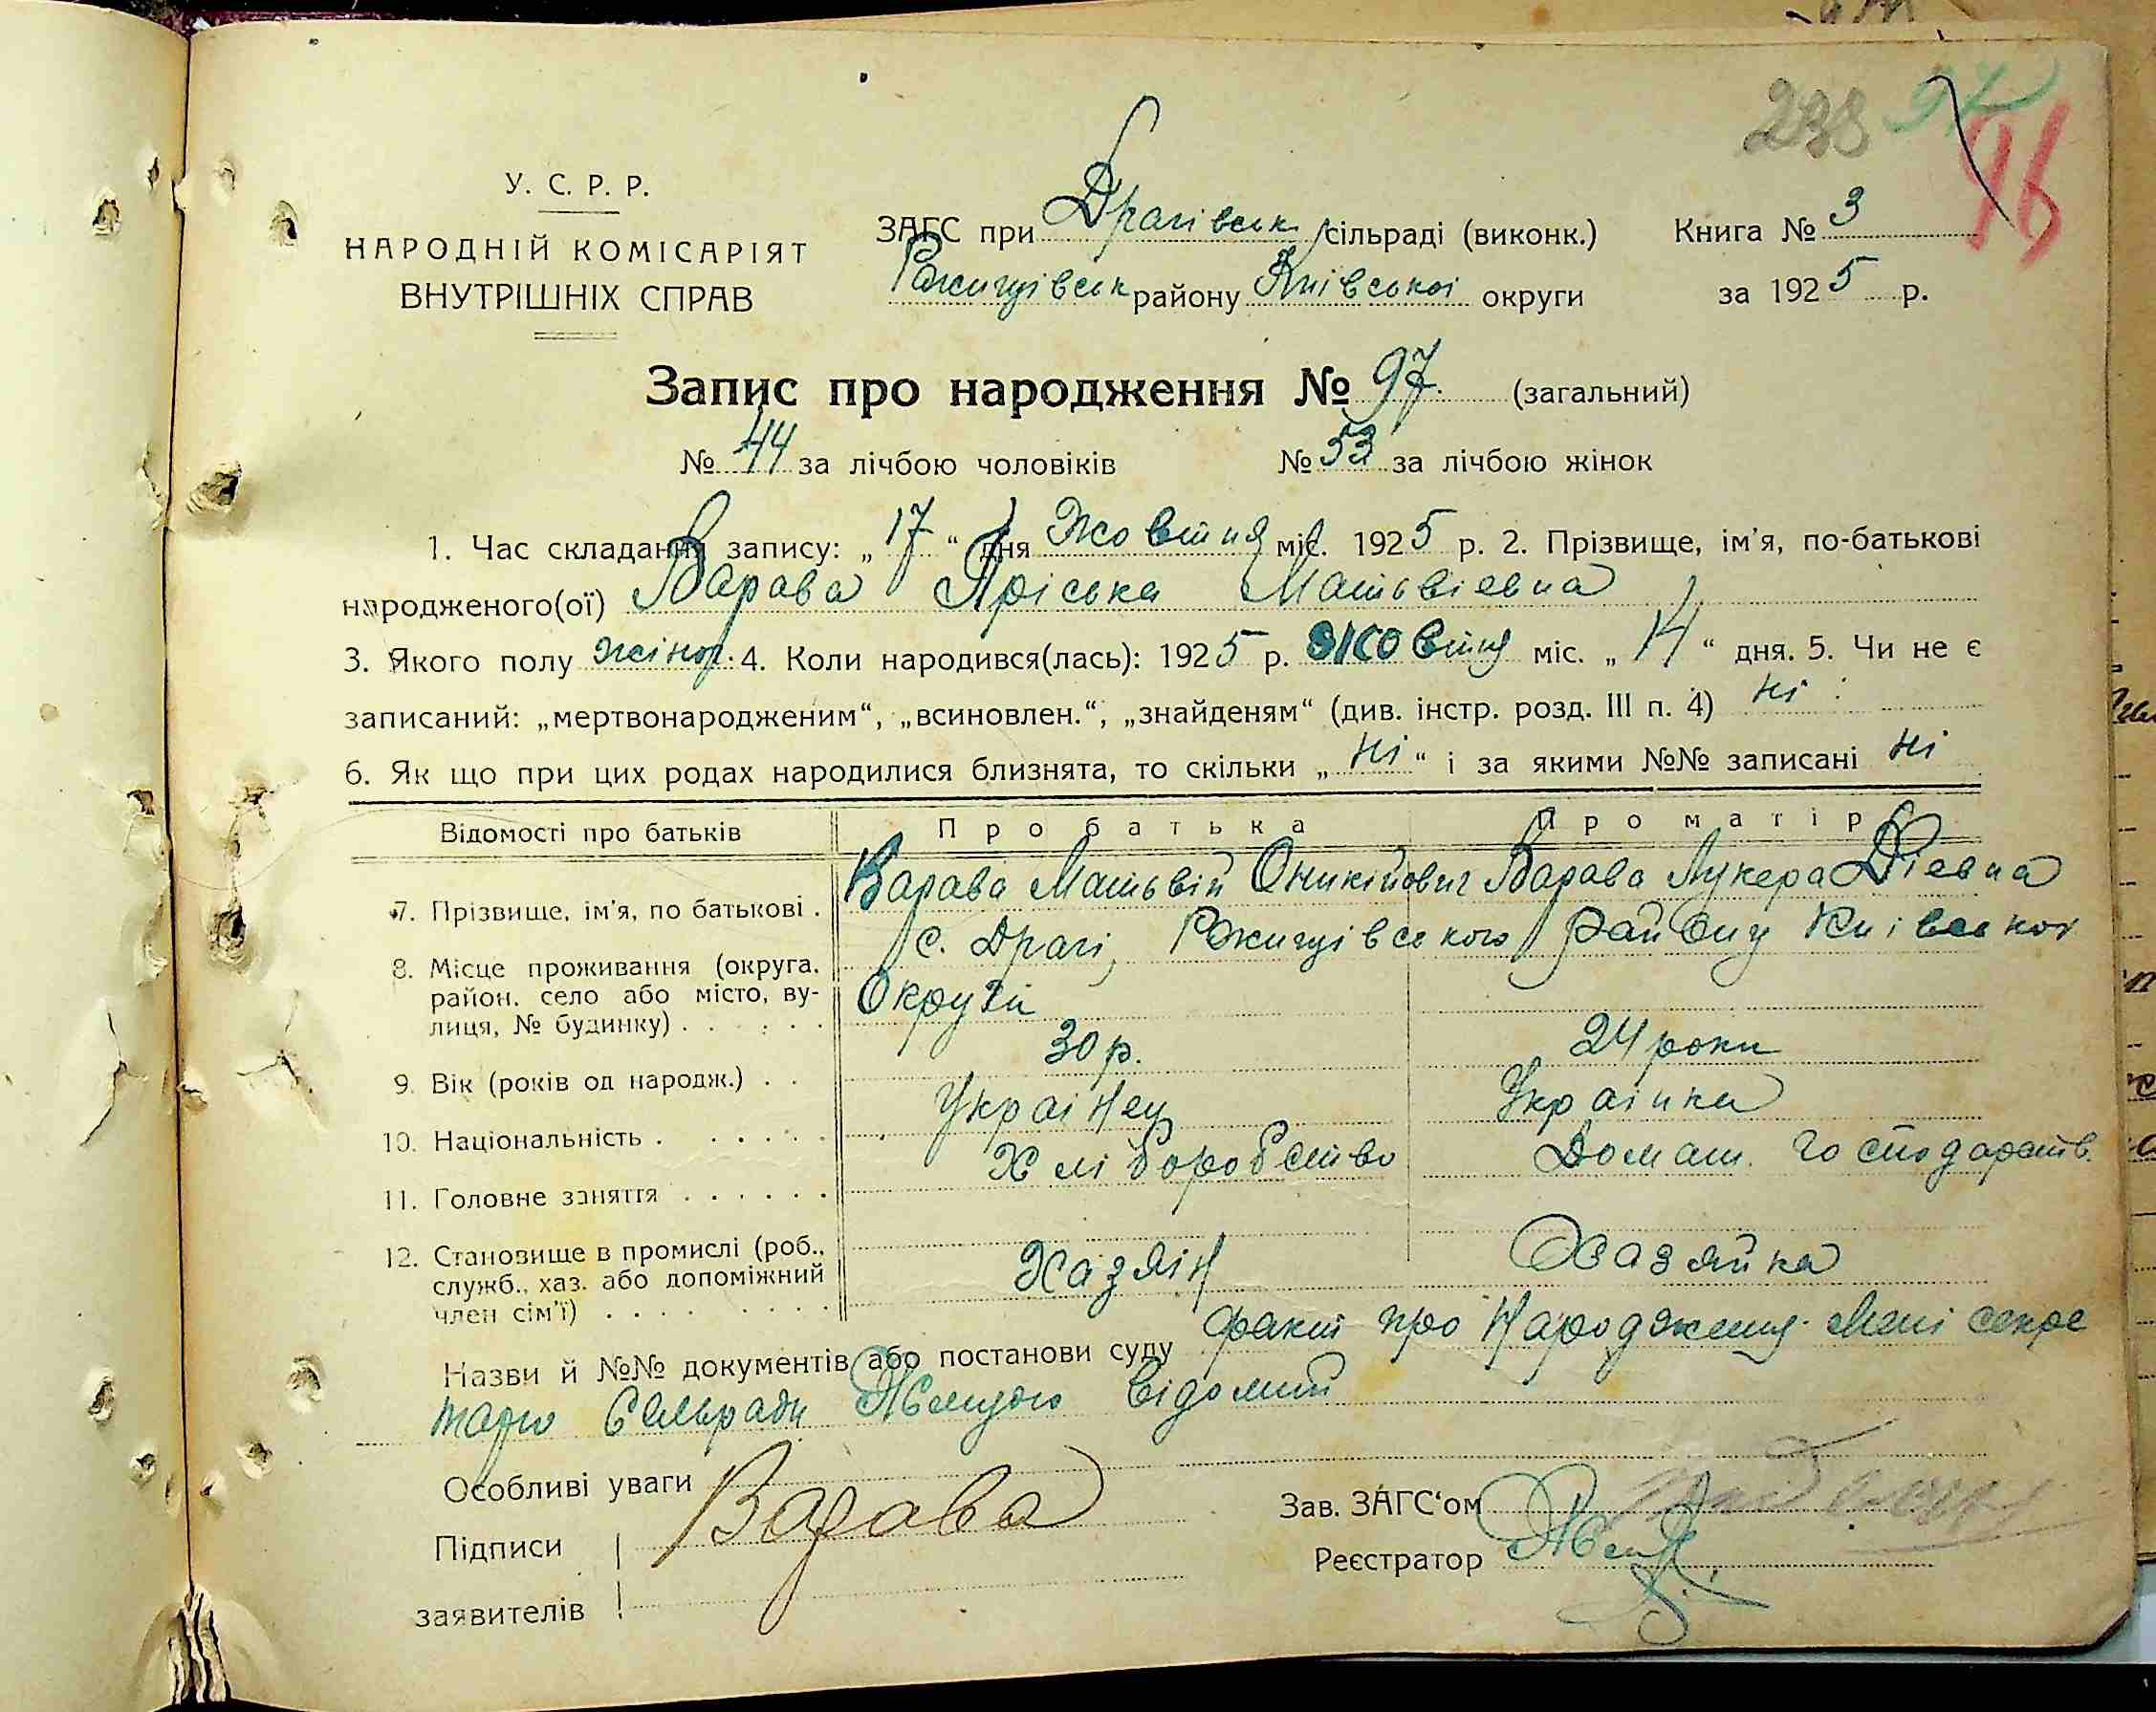 238 97 96
У. С. Р. Р.
НАРОДНІЙ КОМІСАРІЯТ
ВНУТРІШНІХ СПРАВ
ЗАГС при Драгівськ. сільраді (виконк.) Книга № 3
Ржищівськ району Київської округи за 1925 р.
Запис про народження № 97. (загальний)
№ 44 за лічбою чоловіків № 53 за лічбою жінок
1. Час складання запису: „17“ дня Жовтня міс. 1925 р. 2. Прізвище, ім'я, по-батькові
народженого(ої) Варава Пріська Матьвіевна
3. Якого полу жіноч. 4. Коли народився(лась): 1925 р. Жовтня міс. „14“ дня. 5. Чи не є
записаний: „мертвонародженим“, „всиновлен.“, „знайденям“ (див. інстр. розд. III п. 4) ні
6. Як що при цих родах народилися близнята, то скільки „ні“ і за якими №№ записані ні
Відомості про батьків Про батька Про матір
7. Прізвище, ім'я, по батькові . Варава Матьвій Оникійович Варава Лукера Діевна
8. Місце проживання (округа, с. Драгі, Ржищівського району Київської
район, село або місто, ву-
лиця, № будинку) . . . . . Округи
9. Вік (років од народж.) . . 30 р. 24 роки
10. Національність . . . . . . Українец Українка
11. Головне заняття . . . . . . Хліборобство Домаш. господарств.
12. Становище в промислі (роб., Хазяін Хазяйка
служб., хаз. або допоміжний
член сім'ї) . . . . . . . .
Назви й №№ документів або постанови суду факт про народження мені секре
тарю Сельради відомий
Особливі уваги
Підписи Варава Зав. ЗАГС'ом
заявителів Реєстратор